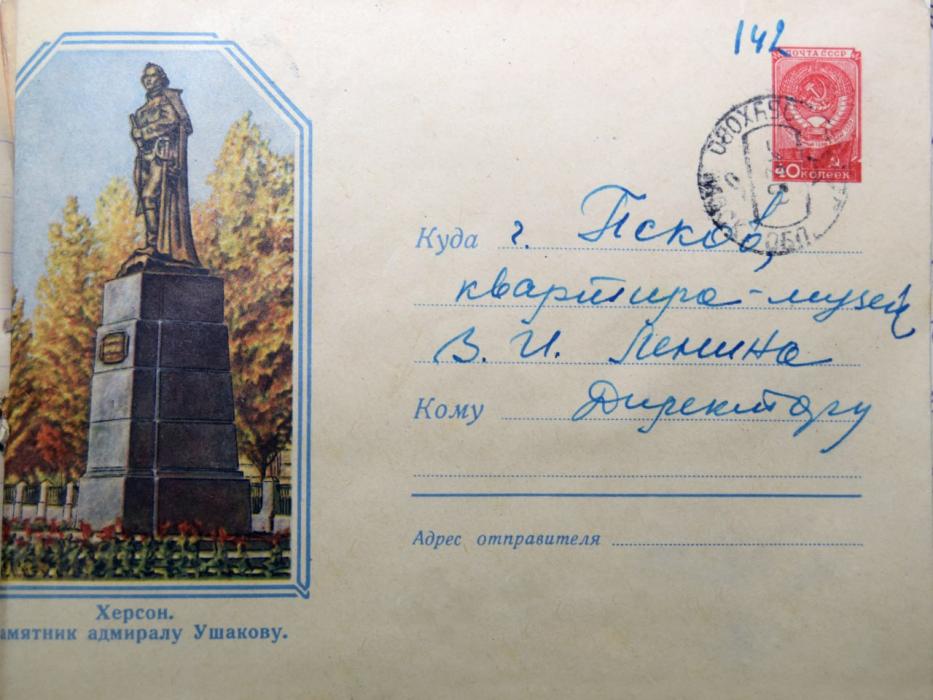 142
ПОЧТА СССР
40 КОПЕЕК
Куда г. Псков,
квартира-музей
В. И. Ленина
Кому Директору
Адрес отправителя
Херсон.
амятник адмиралу Ушакову.